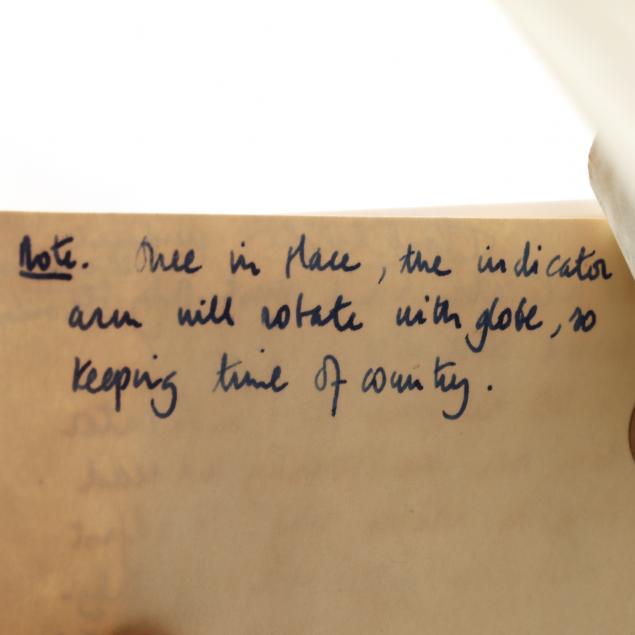 Note. Once in place, the indicator
arm will rotate with globe, so
keeping time of country.